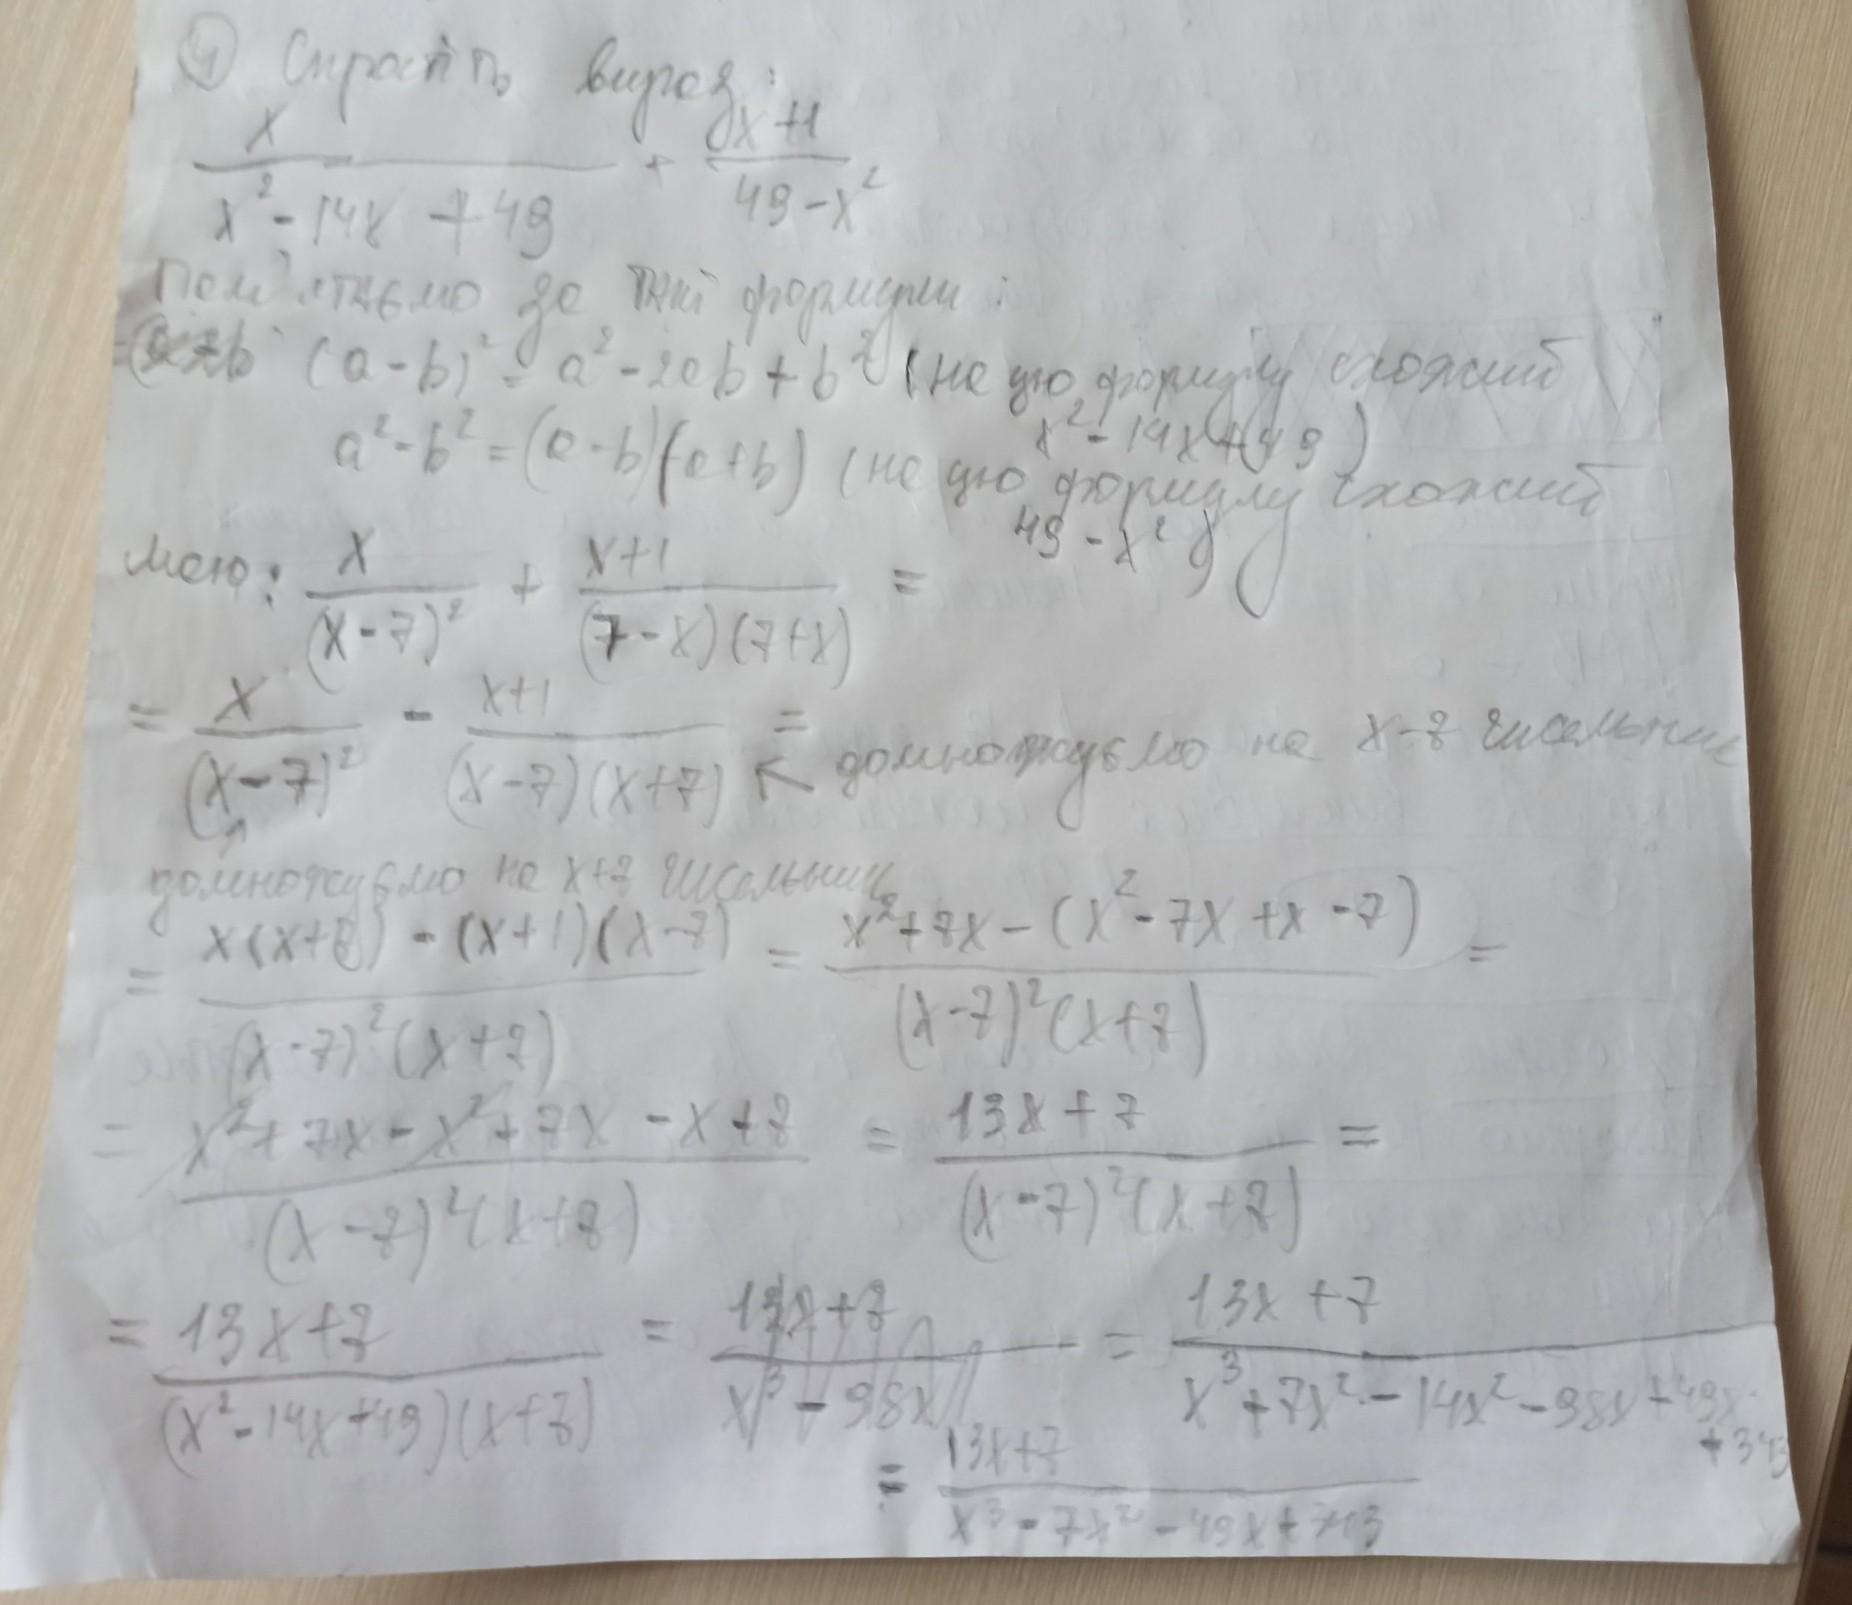 4 Спростіть вираз:
x / (x² - 14x + 49) + (x+1) / (49 - x²)
Пам'ятаємо за такі формули:
(a - b)² = a² - 2ab + b² (на цю формулу схожий
x² - 14x + 49)
a² - b² = (a - b)(a + b) (на цю формулу схожий
49 - x²)
Маю: x / (x - 7)² + (x+1) / ((7 - x)(7 + x)) =
= x / (x - 7)² - (x+1) / ((x - 7)(x + 7)) = ↖ домножуємо на x-7 чисельник
домножуємо на x+7 чисельник
= (x(x+7) - (x+1)(x-7)) / ((x - 7)²(x + 7)) = (x² + 7x - (x² - 7x + x - 7)) / ((x - 7)²(x + 7)) =
= (x² + 7x - x² + 7x - x + 7) / ((x - 7)²(x + 7)) = (13x + 7) / ((x - 7)²(x + 7)) =
= (13x + 7) / ((x² - 14x + 49)(x + 7)) = (13x + 7) / (x³ - 98x) = (13x + 7) / (x³ + 7x² - 14x² - 98x + 49x + 343)
= (13x + 7) / (x³ - 7x² - 49x + 343)